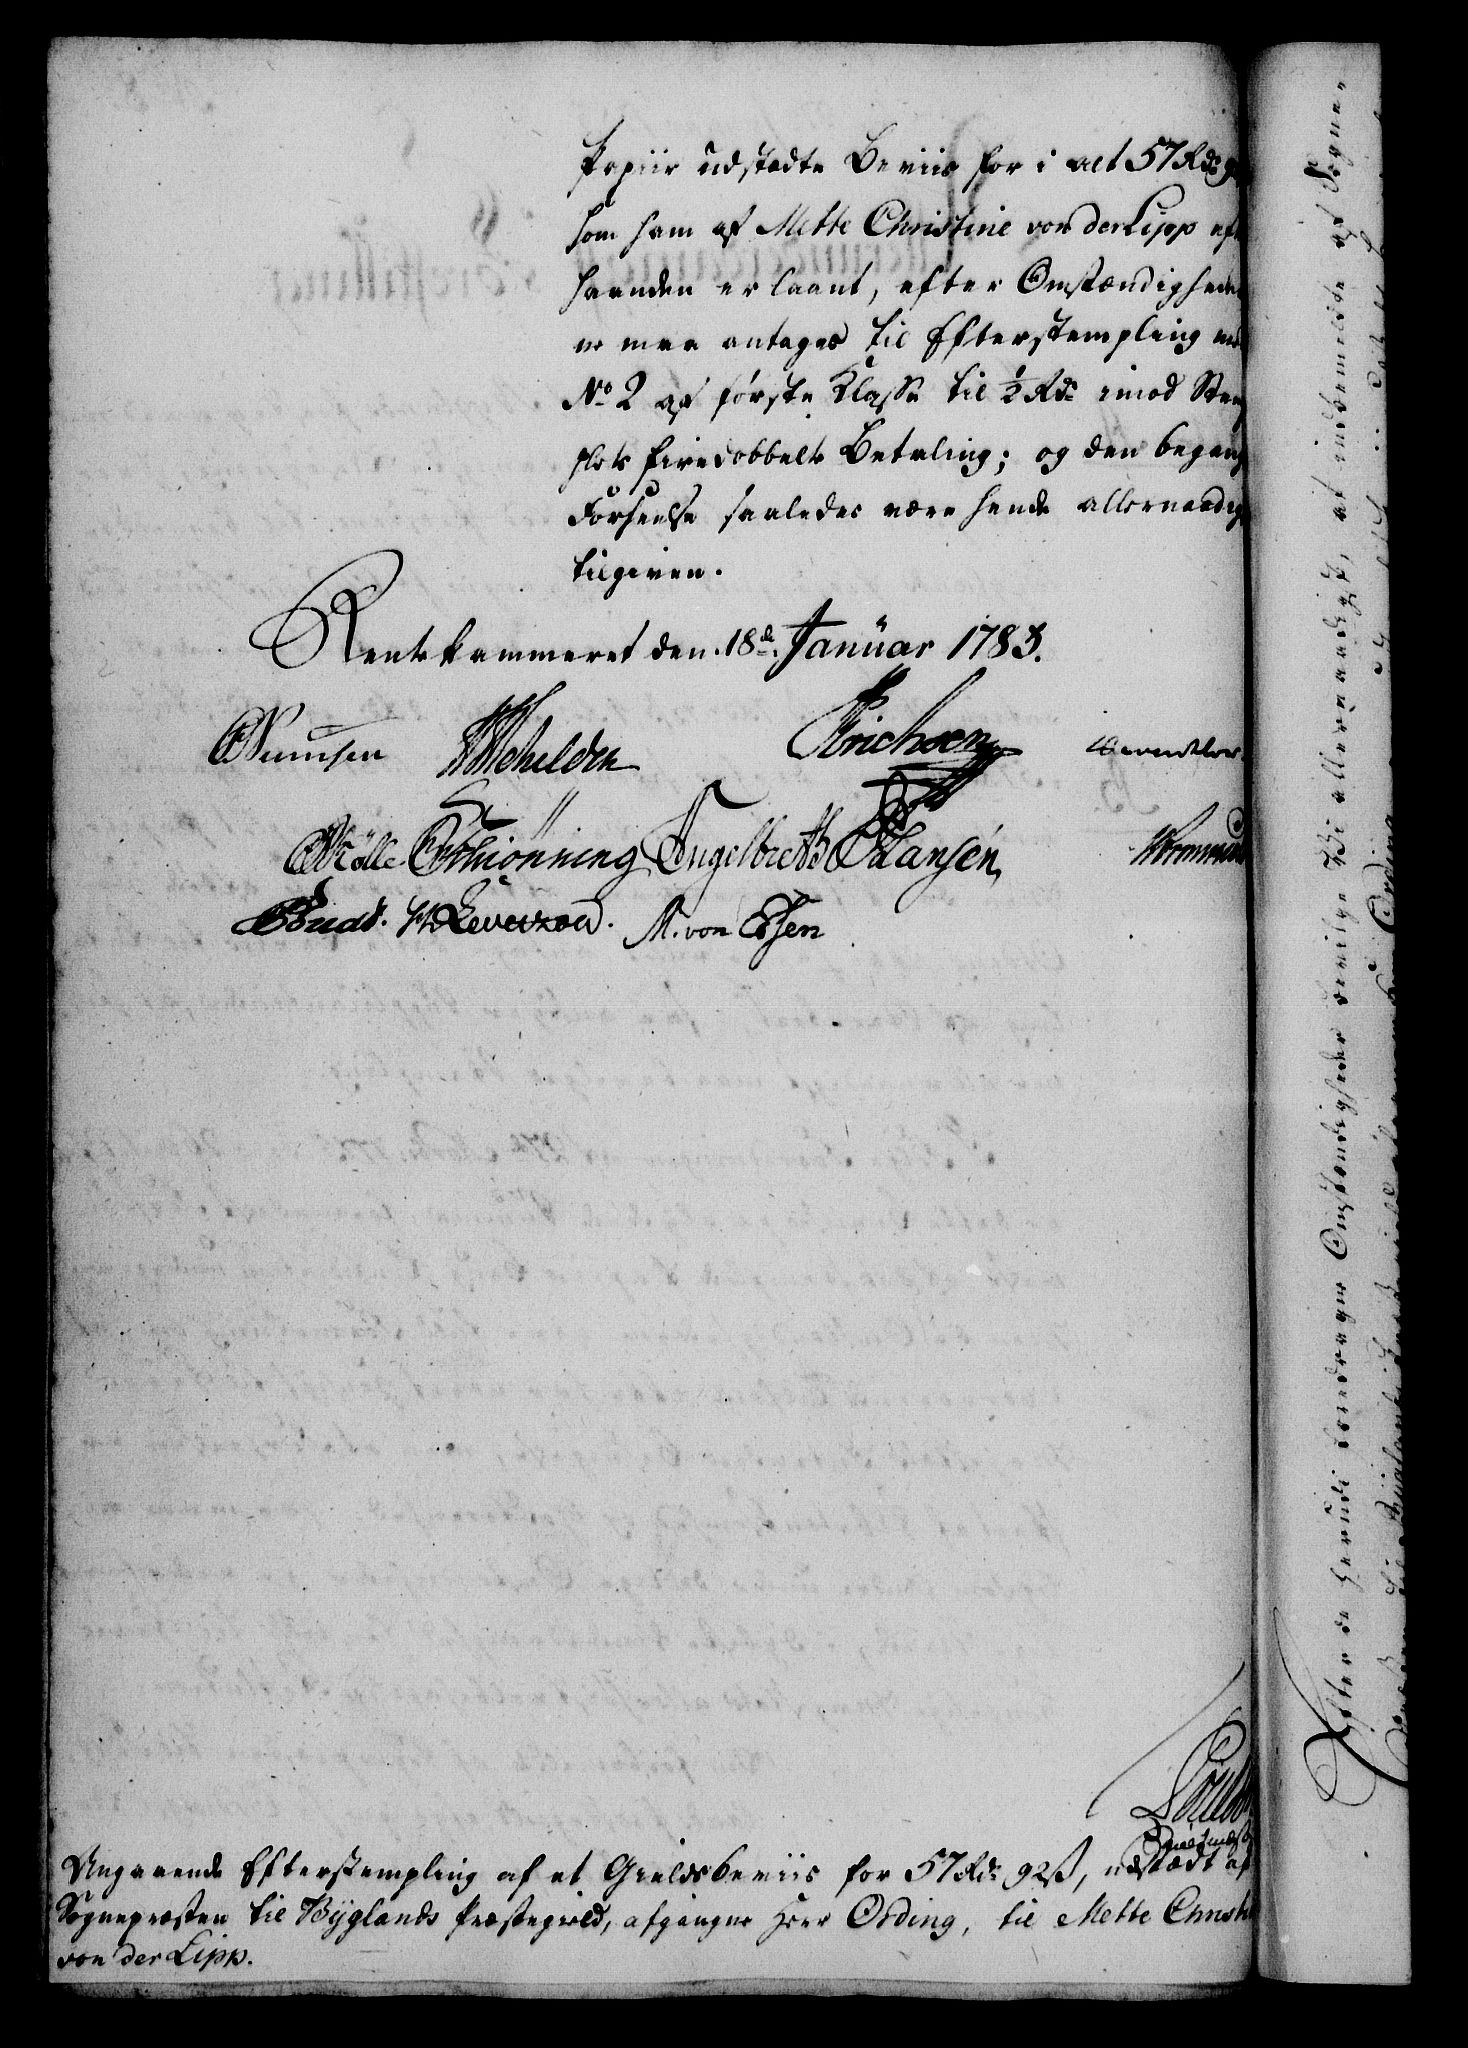 Papiir udstædte Beviis for i alt 57 Rdr 9
som ham af Mette Christine von der Lipp eft
haanden er laant, efter Omstændighede
ne maa antages til Efterstempling med
No 2 af første Klasse til ½ Rdr imod Stem
plets firedobbelte Betaling; og den begang
Forseelse saaledes være hende allernaadig
tilgiven.
Rentekammeret den 18de Januar 1783.
Schilden Erichsen
Mölle Schiönning Engelbreth Hansen
Leverzow. M. von Essen
Angaaende Efterstempling af et Gieldsbeviis for 57 Rdr 92ß, udstædt af
Sognepræsten til Byglands Præstegield, afgangne Herr Ording, til Mette Christi
von der Lipp.
Efter de herudi foredragne Omstændigheder bevilge Vi allernaadigst, at indbemeldte af Sogne-